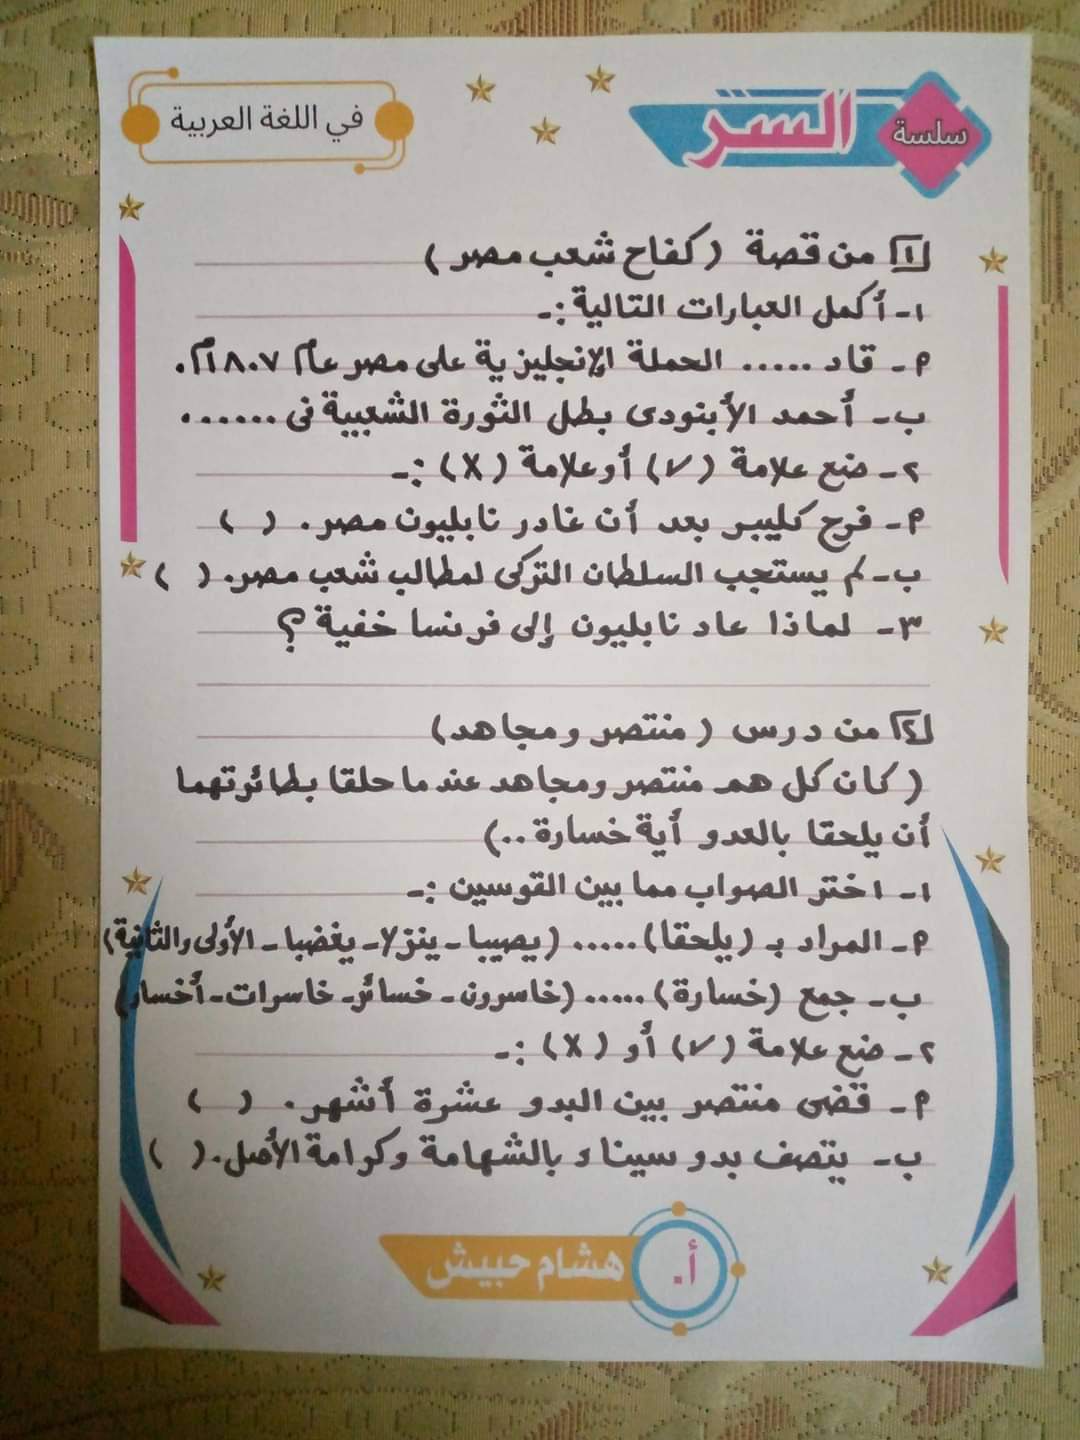 سلسة السر
في اللغة العربية
١ من قصة (كفاح شعب مصر)
١- أكمل العبارات التالية :-
م- قاد ..... الحملة الإنجليزية على مصر عام ١٨٠٧م.
ب- أحمد الأبنودى بطل الثورة الشعبية فى ......
٢- ضع علامة (√) أو علامة (X) :-
م- فرح كليبر بعد أن غادر نابليون مصر. ( )
ب- لم يستجب السلطان التركى لمطالب شعب مصر. ( )
٣- لماذا عاد نابليون إلى فرنسا خفية ؟
٢ من درس (منتصر ومجاهد)
(كان كل هم منتصر ومجاهد عندما حلقا بطائرتهما
أن يلحقا بالعدو أية خسارة ..)
١- اختر الصواب مما بين القوسين :-
م- المراد بـ (يلحقا) ..... (يصيبا - ينزلا - يغضبا - الأولى والثانية)
ب- جمع (خسارة) ..... (خاسرون - خسائر - خاسرات - أخسار)
٢- ضع علامة (√) أو (X) :-
م- قضى منتصر بين البدو عشرة أشهر. ( )
ب- يتصف بدو سيناء بالشهامة وكرامة الأصل. ( )
أ. هشام حبيش